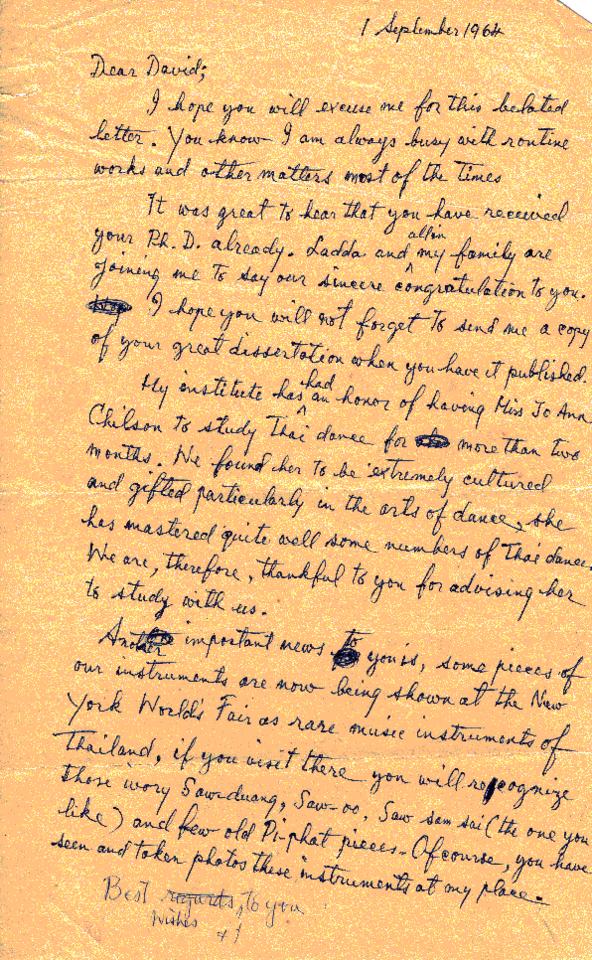 1 September 1964
Dear David;
I hope you will excuse me for this belated
letter. You know I am always busy with routine
works and other matters most of the times
It was great to hear that you have received
your Ph. D. already. Ladda and all in my family are
joining me to say our sincere congratulation to you.
I hope you will not forget to send me a copy
of your great dissertation when you have it published.
My institute has had an honor of having Miss Jo Ann
Chilson to study Thai dance for more than two
months. We found her to be extremely cultured
and gifted particularly in the arts of dance, she
has mastered quite well some numbers of Thai dance.
We are, therefore, thankful to you for advising her
to study with us.
Another important news to you is, some pieces of
our instruments are now being shown at the New
York World's Fair as rare music instruments of
Thailand, if you visit there you will recognize
those ivory Saw-duang, Saw-oo, Saw sam sai (the one you
like) and few old Pi-phat pieces. Of course, you have
seen and taken photos these instruments at my place.
Best regards, to you
Wishes